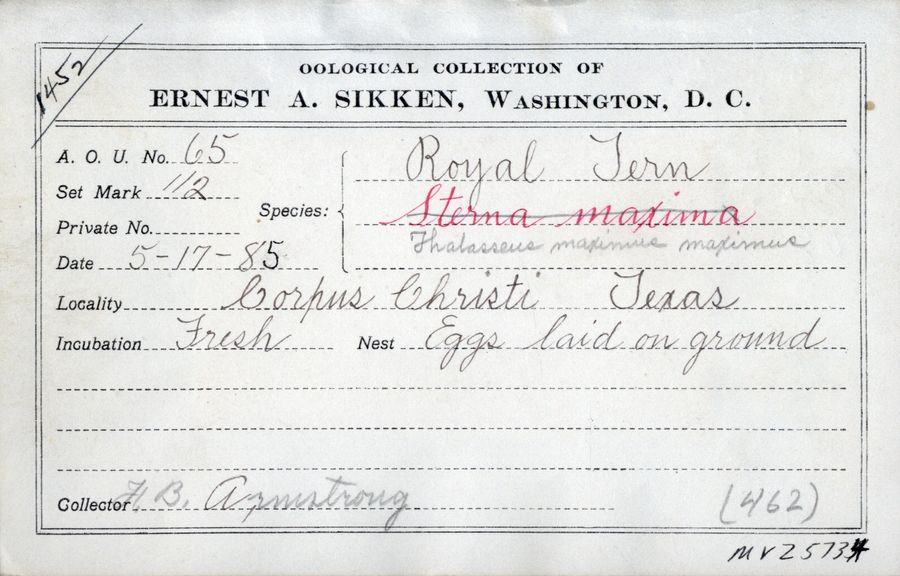 1452
OOLOGICAL COLLECTION OF
ERNEST A. SIKKEN, WASHINGTON, D. C.
A. O. U. No. 65
Set Mark 1/2
Private No.
Date 5-17-85
Species: Royal Tern
Sterna maxima
Thalasseus maximus maximus
Locality Corpus Christi Texas
Incubation Fresh Nest Eggs laid on ground
Collector F. B. Armstrong (462)
MVZ 5734